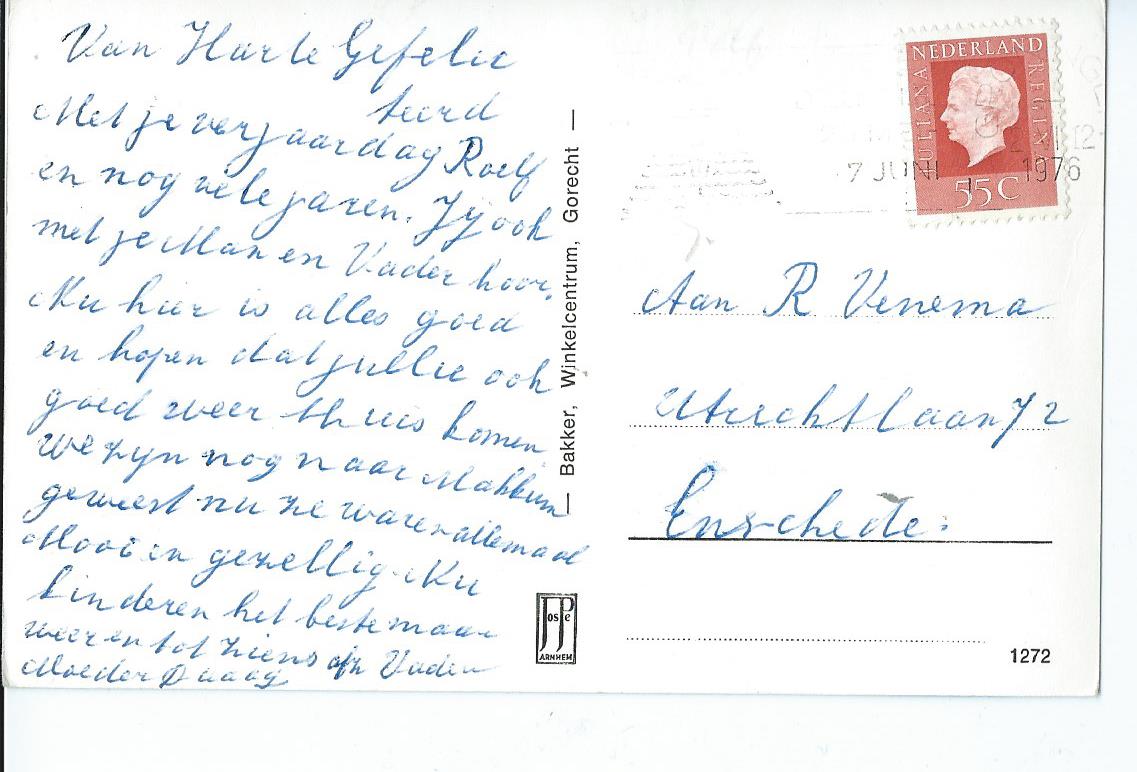 Van Harte Gefelic
teerd
Met je verjaardag Roelf
en nog vele jaren. Jij ook
met je Man en Vader hoor.
Nu hier is alles goed
en hopen dat jullie ook
goed weer thuis komen
we zijn nog naar Makkum
geweest nu ze waren allemaal
Mooi en gezellig. Nu
kinderen het beste maar
weer en tot ziens Vader
Moeder Daaag
Bakker, Winkelcentrum, Gorecht
JosPe
ARNHEM
NEDERLAND
JULIANA REGINA
55 C
7 JUNI 1976
Aan R Venema
Utrechtlaan 72
Enschede.
1272